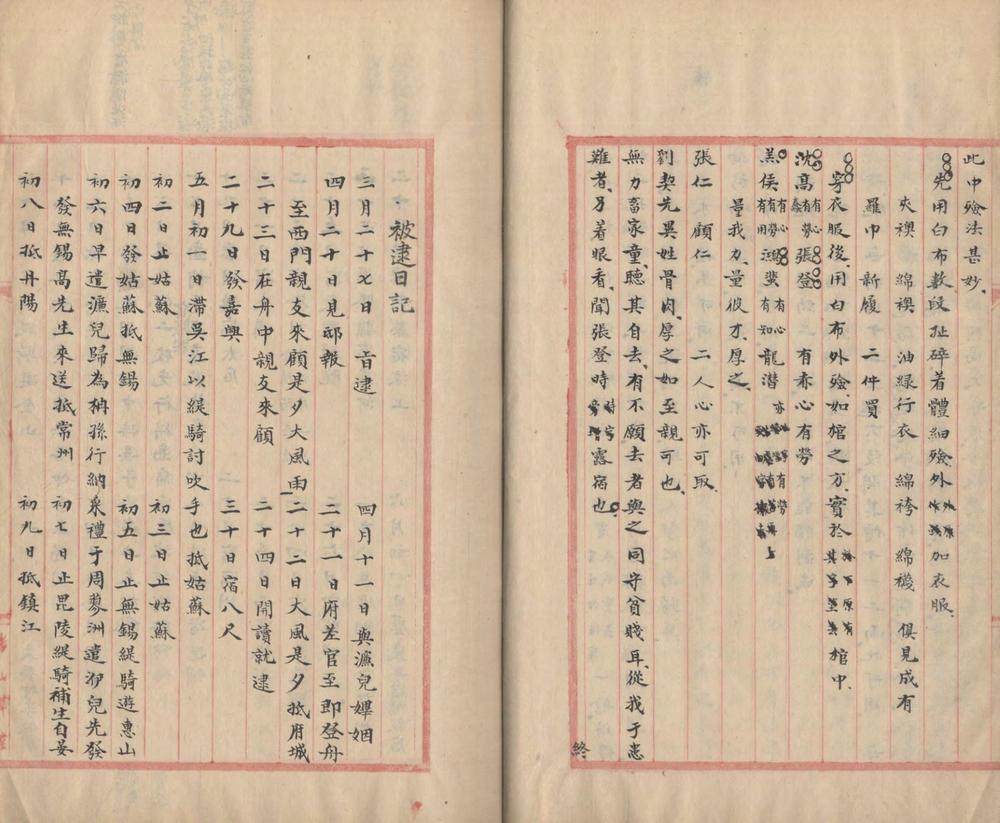 此中殮法甚妙
先用白布數段扯碎着體細殮外加衣服
夾襖 綿襖 油綠行衣 綿袴 綿襪 俱見成有
羅巾 新履 二件買
穿衣服後用白布外殮如棺之方實於棺中
沈高有心有勞張登 有赤心有勞
侯有心有勞有用鴻蜚有心有知龍潛
量我力量彼才厚之
張仁 顧仁 二人心亦可取
劉契先異姓骨肉厚之如至親可也
無力畜家童聽其自去有不願去者與之同守貧賤耳從我于患
難者另着眼看聞張登時露宿也
終
被逮日記
三月二十七日 旨逮 四月十二日與濂兒婢姻
四月二十日見邸報 二十一日府差官至即登舟
至西門親友來顧是夕大風雨 二十二日大風是夕抵府城
二十三日在舟中親友來顧 二十四日開讀就逮
二十九日發嘉興 三十日宿八尺
五月初一日滯吳江以緹騎討吹手也抵姑蘇
初二日止姑蘇 初三日止姑蘇
初四日發姑蘇抵無錫 初五日止無錫緹騎遊惠山
初六日早遣濂兒歸為枘孫行納采禮于周蓼洲遣洢兒先發
發無錫高先生來送抵常州 初七日止毘陵緹騎補生自晏
初八日抵丹陽 初九日抵鎮江